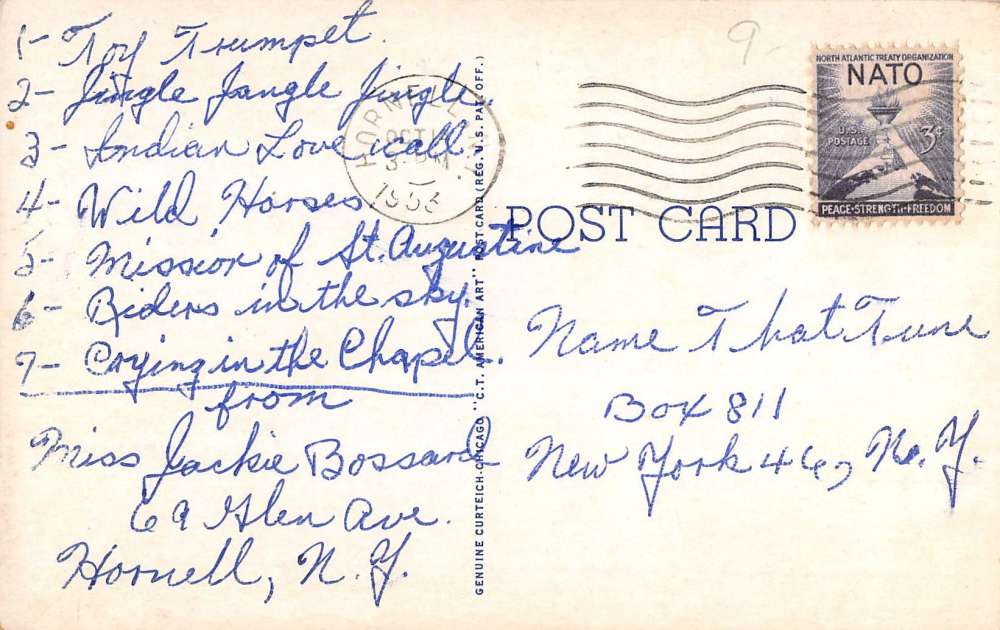 1- Toy Trumpet.
2- Jingle Jangle Jingle.
3- Indian Love call.
4- Wild Horses
5- Mission of St. Augustine
6- Riders in the sky.
7- Crying in the Chapel.
from
Miss Jackie Bossard
69 Glen Ave.
Hornell, N. Y.
HORNELL N.Y.
OCT
1953
GENUINE CURTEICH-CHICAGO "C.T. AMERICAN ART" POST CARD (REG. U.S. PAT. OFF.)
POST CARD
9-
NORTH ATLANTIC TREATY ORGANIZATION
NATO
U.S.
POSTAGE
3¢
PEACE·STRENGTH·FREEDOM
Name That Tune
Box 811
New York 46, N. Y.